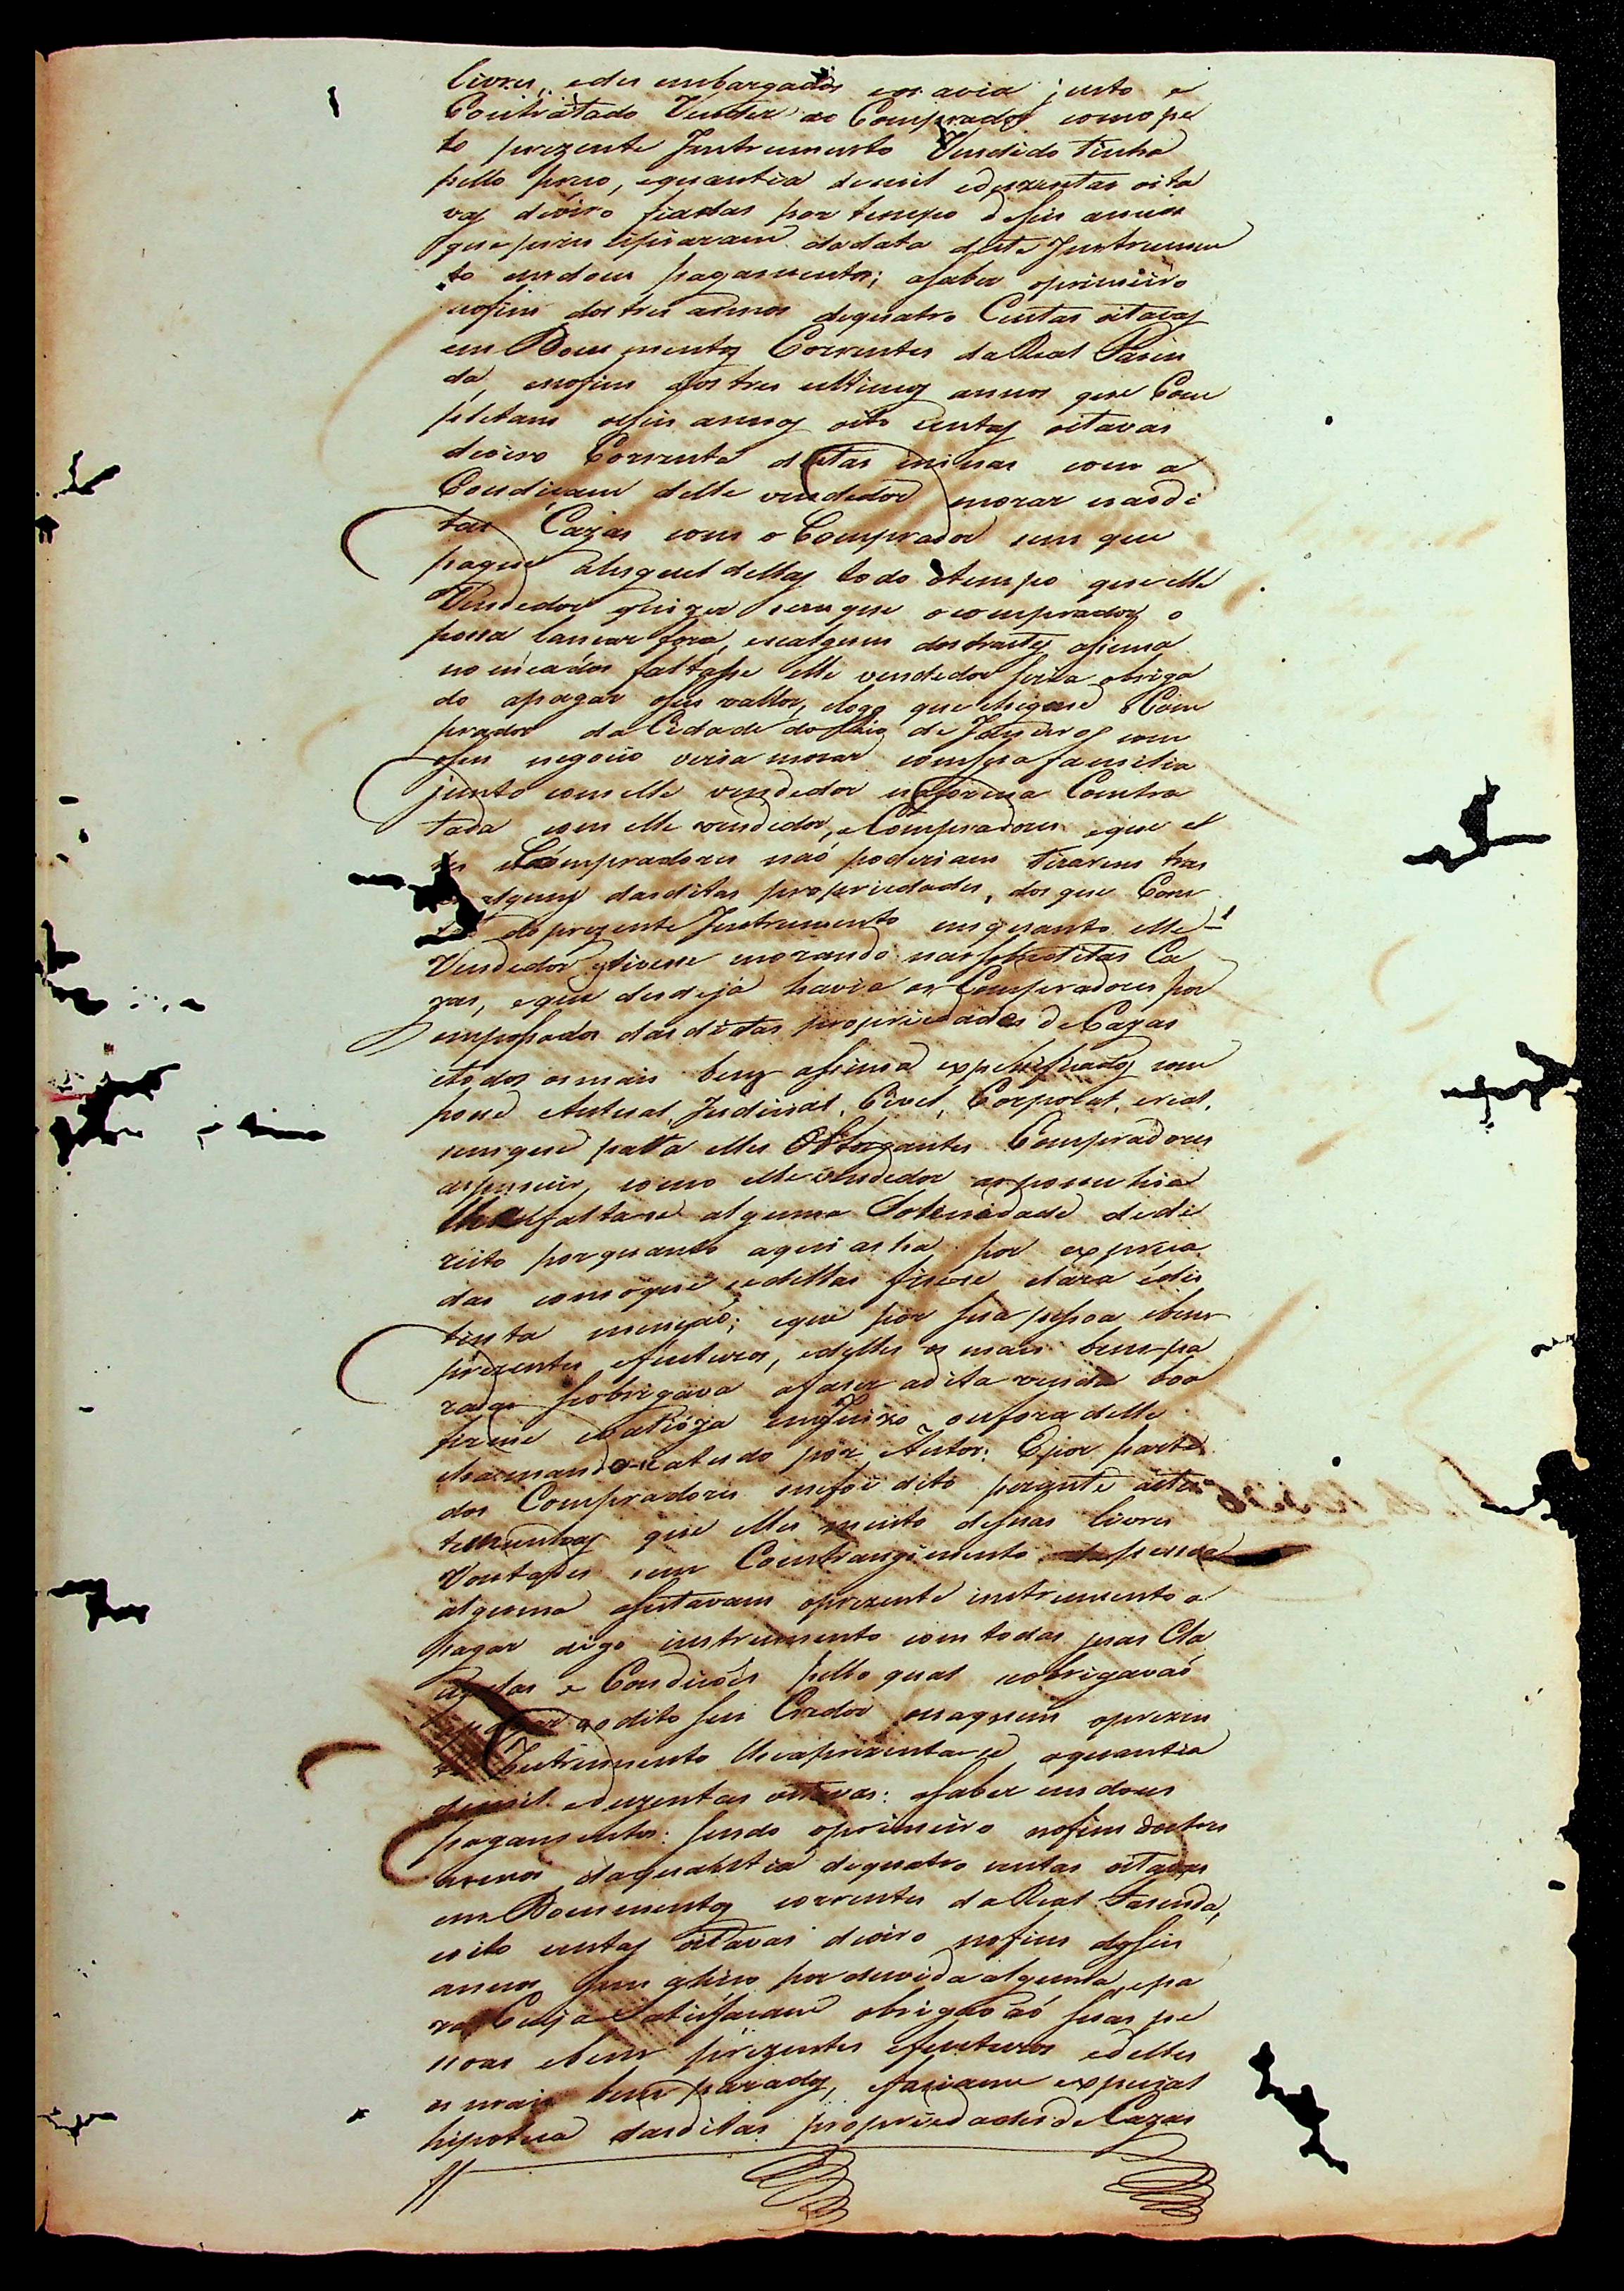 livres, edes embargados eos avia justo e
Contratado Vender ao Comprador como pe
lo prezente Instrumento Vendido tinha
pello preso, equantia demil eduzentas oita
vas deoiro fiadas por tempo deseis annos
que prinsipiaram dadata deste Instrumen
to emdous pagamentos; asaber oprimeiro
nofim dostres annos dequatro Centas oitavas
em Documentos Correntes da Real Fazen
da, enofim dos tres ultimos annos que Com
pletam osseis annos oito centas oitavas
deoiro Corrente destas minas com a
Condiçam delle vendedor morar nasdi
tas Cazas com o Comprador sem que
pague aluguel dellas todo otempo que elle
Vendedor quizer sem que ocomprador o
possa lansar fora, ese algum dos trastes asima
nomeados faltasse elle vendedor seria obriga
do apagar oseu vallor, elogo que chegase o Com
prador da Cidade do Rio de Janeiro com
oseu negocio viria morar comsua familia
junto com elle vendedor naforma Contra
tada com elle vendedor, e Compradores eque el
les Compradores naó poderiam tirarem tras
algum dasditas propriedades, dos que Cons
doprezente Instrumento emquanto elle
Vendedor estivese morando nassobreditas Ca
zas, eque desdejá havia os Compradores por
empossados dasditas propriedades de Cazas
etodos osmais bens asima expesificados com
posse Autual, Judicial, Civel, Corporal, e real,
semque para elles Outorgantes Compradores
aspusuir, como elle vendedor aspossuhia
lhe faltase alguma Solenidade dedi
reito porquanto aqui as ha por expreça
das comoque se dellas fisese clara edis
tinta mençaó; eque por sua pessoa ebens
prezentes efuturos, edelles os mais bem pa
rados seobrigava afazer adita venda boa
firme evalióza emjuizo oufora delle
chamandose atudo por Autor: Epor parte
dos Compradores mefoi dito perante astes
temunhas que elles muito desuas livres
Vontades sem Constrangimento depessoa
alguma aseitavam oprezente instrumento a
pagar digo instrumento com todas suas Cla
uzulas e Condições pello qual seobrigavaó
apagar aodito seu Credor ouaquem oprezen
te Instrumento lheaprezentase aquantia
demil eduzentas oitavas: asaber emdous
pagamentos: sendo oprimeiro nofim dostres
annos daquantia dequatro centas oitavas
em Documentos correntes da Real Fazenda,
eoito centas oitavas deoiro nofim dosseis
annos sem aliso por duvida alguma, epa
ra Cuja satisfacam obrigavaó suas pe
ssoas ebens prezentes efuturos edelles
os mais bem parados, efasiam expeçial
hipoteca dasditas propriedades de Cazas